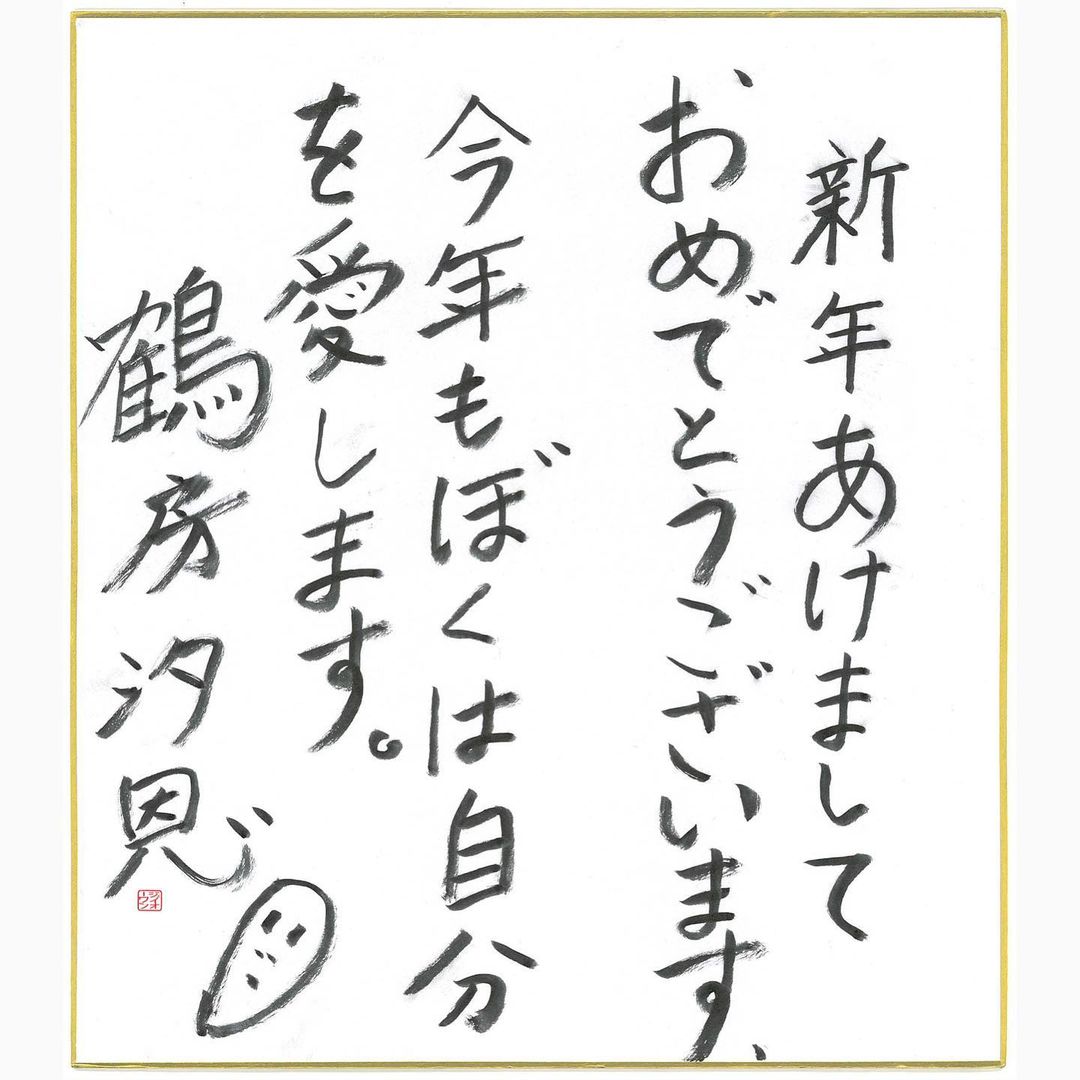 新年あけまして
おめでとうございます、
今年もぼくは自分
を愛します。
鶴房汐恩